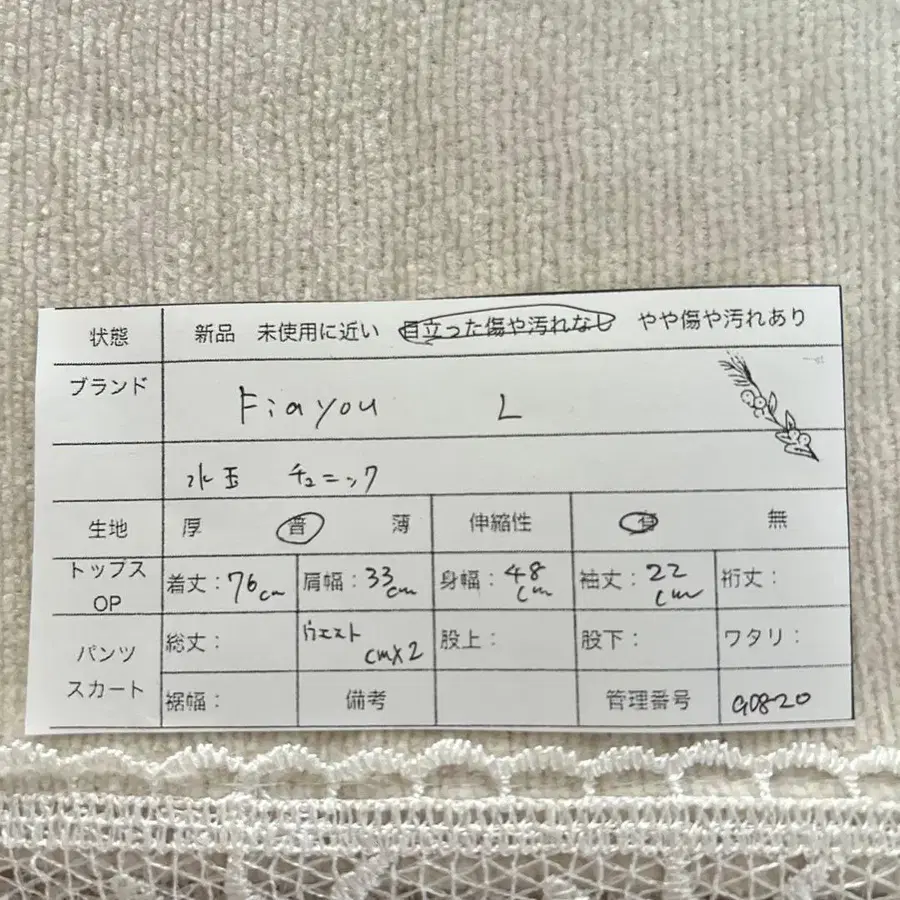 状態 新品 未使用に近い 目立った傷や汚れなし やや傷や汚れあり
ブランド Fiayou L
水玉 チュニック
生地 厚 普 薄 伸縮性 有 無
トップス OP 着丈:76cm 肩幅:33cm 身幅:48cm 袖丈:22cm 裄丈:
パンツ スカート 総丈: ウエスト cm×2 股上: 股下: ワタリ:
裾幅: 備考 管理番号 90820